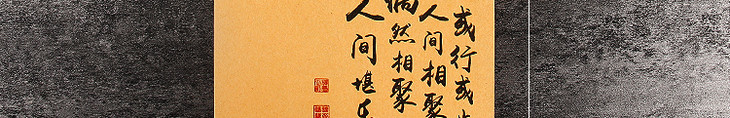 或行或
人间相聚
偶然相聚
人间堪